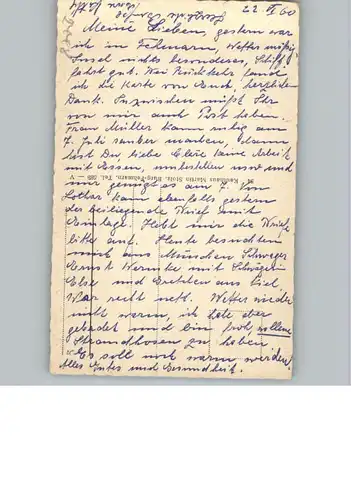 22. VI 60
Meine Lieben, gestern war
ich in Fehmarn, Wetter mäßig
Insel nichts besonderes, Schiff-
fahrt gut. Bei Rückkehr fand
ich die Karte von Euch, herzlichen
Dank. Inzwischen müßt Ihr
von mir auch Post haben.
Frau Müller kann ruhig am
7. Juli sauber machen, dann
hast Du, liebe keine Arbeit
mit Essen, umbestellen usw und
mir genügt es am 7. Von
Lothar kam ebenfalls gestern
der beiliegende Brief mit
Einlage. Hebt mir die Briefe
bitte auf. Heute besuchten
mich aus München Schwager
Ernst Warnke mit Schwägerin
Else und aus Kiel.
War recht nett. Wetter wieder
nicht warm, ich habe aber
gebadet und bin froh wollene
Strandhosen zu haben
Es soll noch warm werden!
Alles Gutes und Gesundheit.
Kaufhaus Martin Stolz, Burg-Fehmarn, Tel. 585